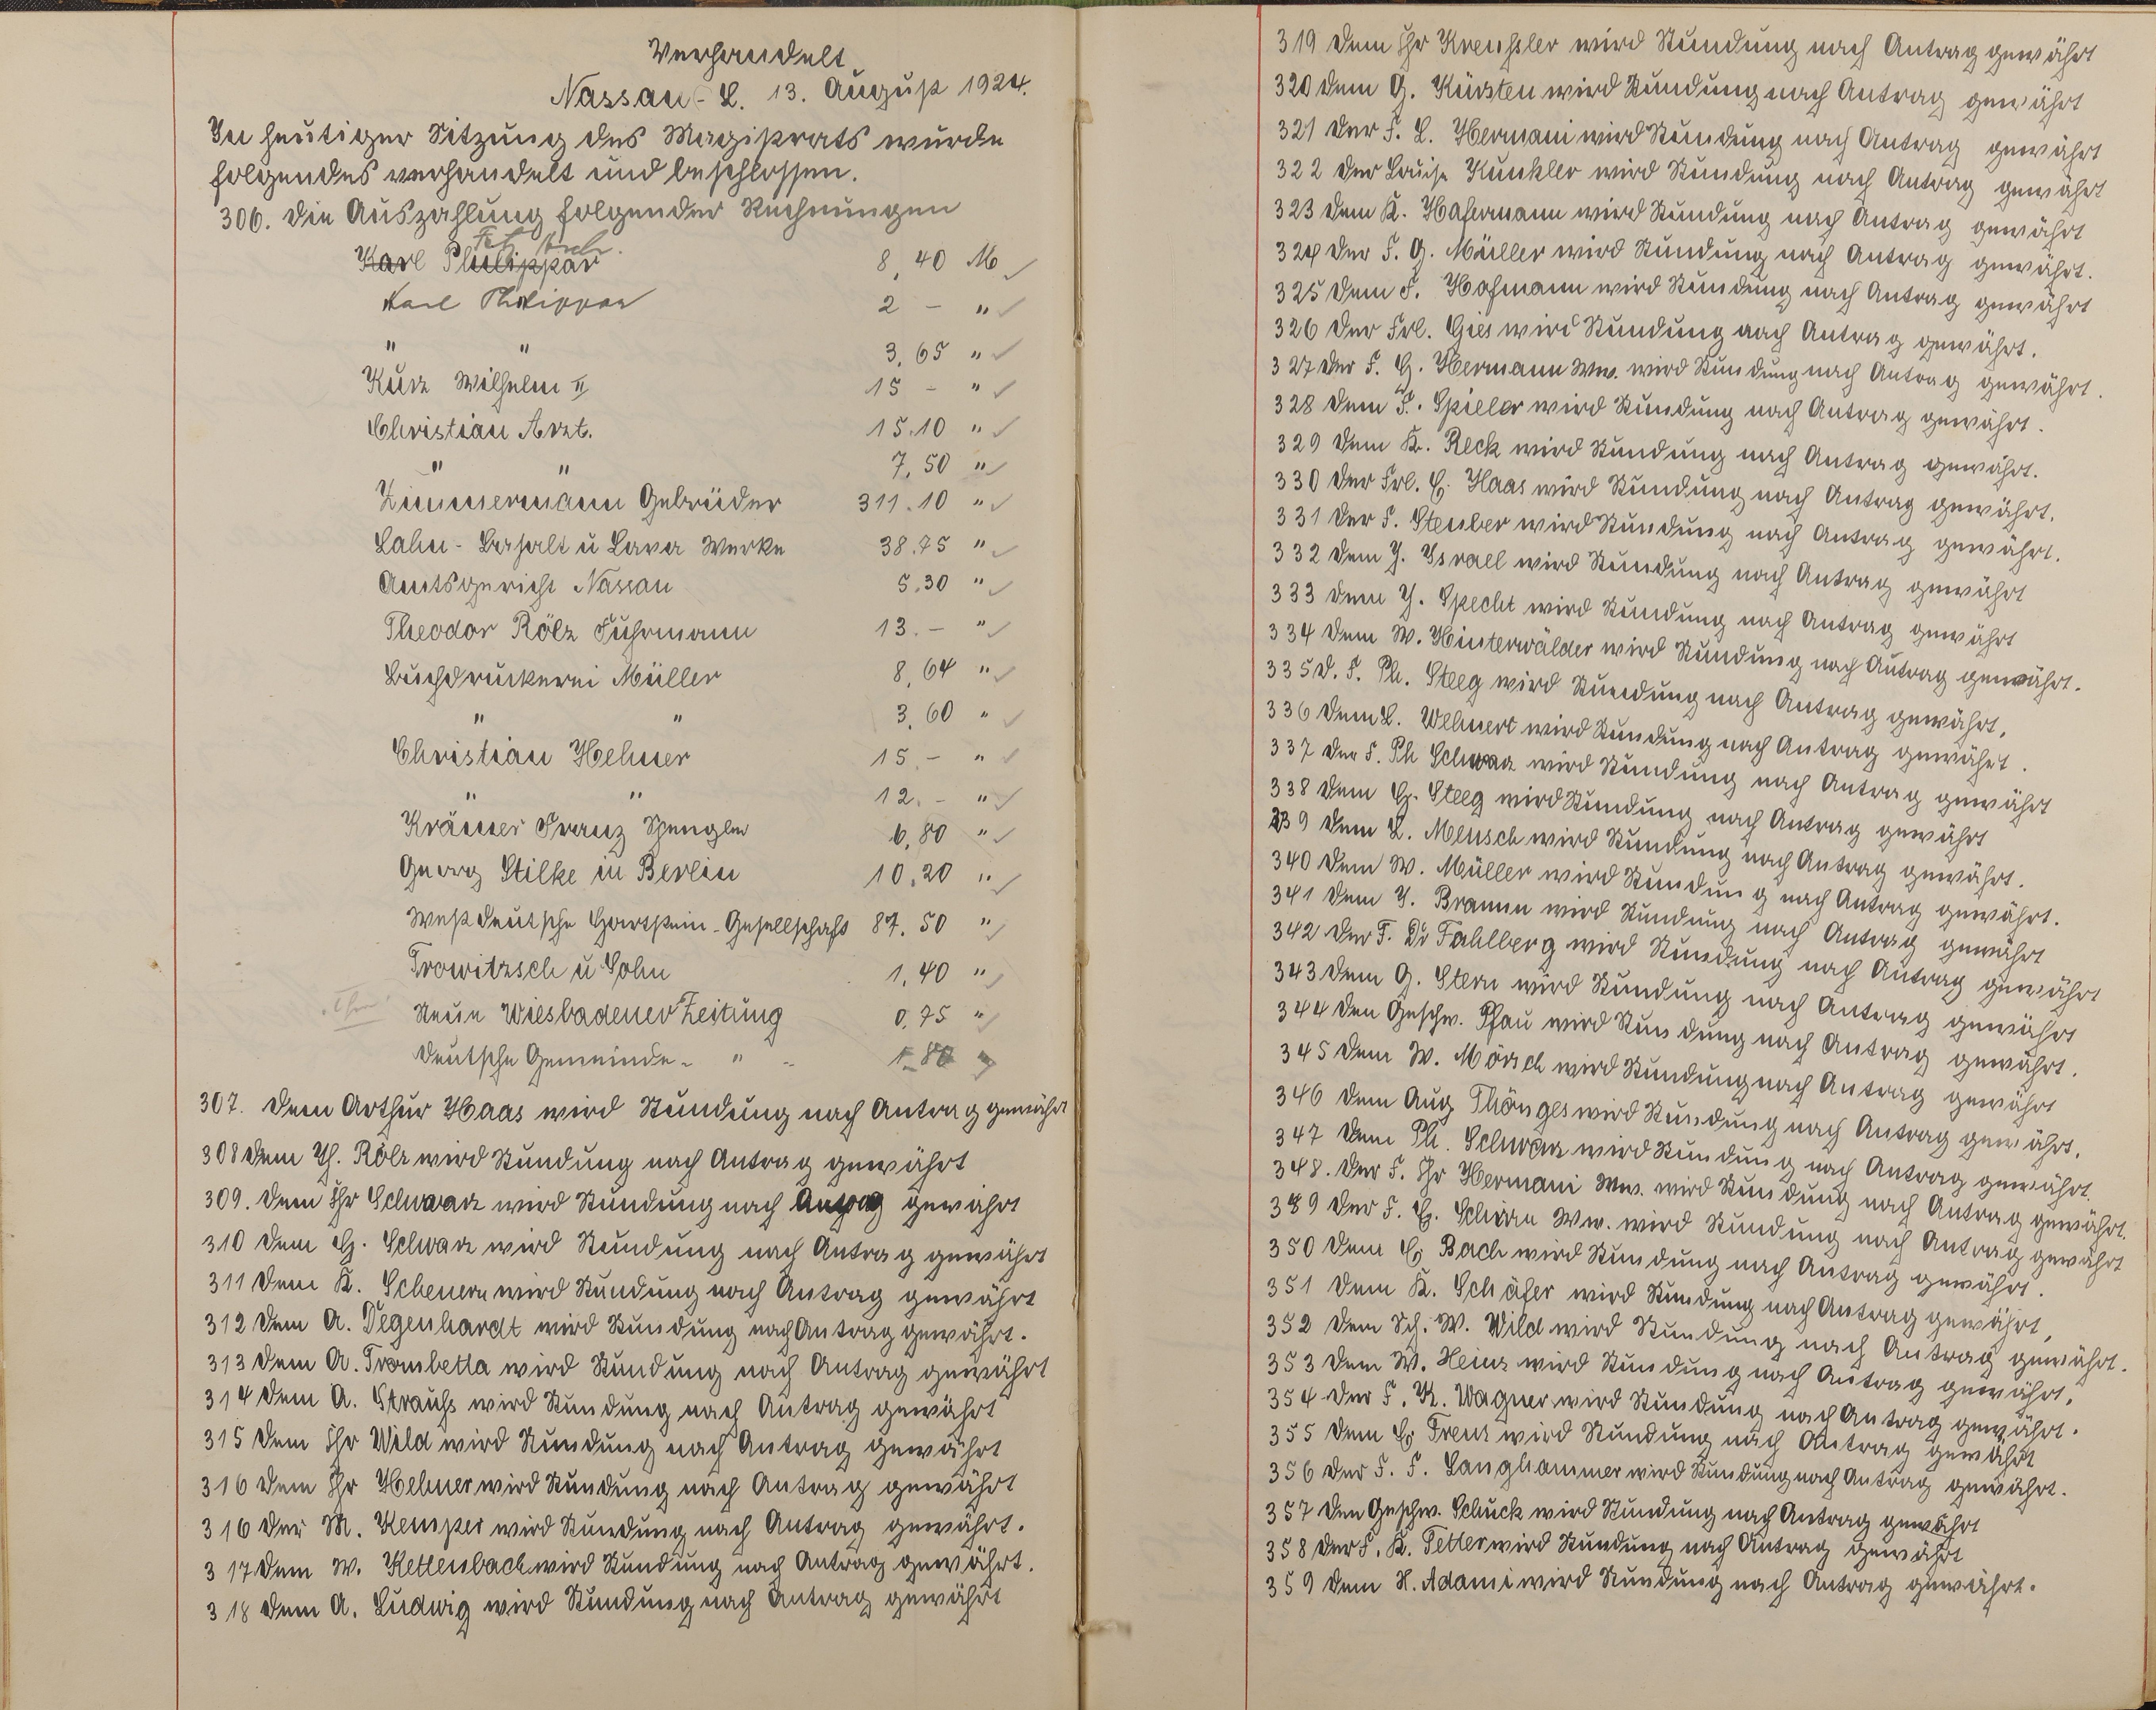 Verhandelt
Nassau-L. 13. August 1924.
In heutiger Sitzung des Magistrats wurde
folgendes verhandelt und beschlossen.
306. Die Auszahlung folgender Rechnungen
Karl Philippar 8,40 M
Karl Philippar 2 - "
" " 3,65 "
Kurz Wilhelm II 15 - "
Christian Arzt. 15.10 "
" " 7,50 "
Zimmermann Gebrüder 311.10 "
Lahn-Basalt u Lava Werke 38.75 "
Amtsgericht Nassau 5.30 "
Theodor Rölz Fuhrmann 13.- "
Buchdruckerei Müller 8,64 "
" " 3,60 "
Christian Hehner 15.- "
" " 12.- "
Krämer Franz Spengler 6,80 "
Georg Stilke in Berlin 10.20 "
Westdeutsche Hartstein-Gesellschaft 87.50 "
Trowitzsch u Sohn 1,40 "
Neue Wiesbadener Zeitung 0,75 "
Deutsche Gemeinde- " - 1.80 "
307. Dem Arthur Haas wird Stundung nach Antrag gewährt
308 dem Th. Rölz wird Stundung nach Antrag gewährt
309. dem Chr Schwarz wird Stundung nach Antrag gewährt
310 dem H. Schwarz wird Stundung nach Antrag gewährt
311 dem K. Scheuern wird Stundung nach Antrag gewährt
312 dem A. Degenhardt wird Stundung nach Antrag gewährt.
313 dem A. Trombetta wird Stundung nach Antrag gewährt
314 dem A. Strauß wird Stundung nach Antrag gewährt
315 dem Chr Wild wird Stundung nach Antrag gewährt
316 dem Chr Hehner wird Stundung nach Antrag gewährt
316 der M. Kemper wird Stundung nach Antrag gewährt.
317 dem W. Kettenbach wird Stundung nach Antrag gewährt.
318 dem A. Ludwig wird Stundung nach Antrag gewährt
319 dem Chr Kreußler wird Stundung nach Antrag gewährt
320 dem G. Kürsten wird Stundung nach Antrag gewährt
321 der F. L. Hermani wird Stundung nach Antrag gewährt
322 der Louise Kunkler wird Stundung nach Antrag gewährt
323 dem K. Hafermann wird Stundung nach Antrag gewährt
324 der F. G. Müller wird Stundung nach Antrag gewährt.
325 dem F. Hofmann wird Stundung nach Antrag gewährt
326 der Frl. Gies wird Stundung nach Antrag gewährt.
327 der F. H. Hermann Ww. wird Stundung nach Antrag gewährt.
328 dem F. Spieler wird Stundung nach Antrag gewährt.
329 dem K. Reck wird Stundung nach Antrag gewährt.
330 der Frl. E. Haas wird Stundung nach Antrag gewährt.
331 der F. Steuber wird Stundung nach Antrag gewährt.
332 dem J. Israel wird Stundung nach Antrag gewährt
333 dem J. Specht wird Stundung nach Antrag gewährt
334 dem W. Hinterwälder wird Stundung nach Antrag gewährt.
335 d. F. Ph. Steeg wird Stundung nach Antrag gewährt,
336 dem L. Wehnert wird Stundung nach Antrag gewährt.
337 der F. Ph Schwarz wird Stundung nach Antrag gewährt
338 dem H. Steeg wird Stundung nach Antrag gewährt
339 dem L. Mensch wird Stundung nach Antrag gewährt.
340 dem W. Müller wird Stundung nach Antrag gewährt.
341 dem J. Braunn wird Stundung nach Antrag gewährt
342 der F. Dr Fahlberg wird Stundung nach Antrag gewährt
343 dem G. Stern wird Stundung nach Antrag gewährt
344 den Geschw. Pfau wird Stundung nach Antrag gewährt.
345 dem W. Mörsch wird Stundung nach Antrag gewährt
346 dem Aug Thönges wird Stundung nach Antrag gewährt.
347 dem Ph. Schwarz wird Stundung nach Antrag gewährt.
348. der F. Chr Hermani Ww. wird Stundung nach Antrag gewährt.
349 der F. H. Schirra Ww. wird Stundung nach Antrag gewährt
350 dem E Bach wird Stundung nach Antrag gewährt.
351 dem K. Schäfer wird Stundung nach Antrag gewährt,
352 dem Sch. W. Wild wird Stundung nach Antrag gewährt.
353 dem W. Heinz wird Stundung nach Antrag gewährt,
354 der F. K. Wagner wird Stundung nach Antrag gewährt.
355 dem E Frenz wird Stundung nach Antrag gewährt
356 der F. F. Langhammer wird Stundung nach Antrag gewährt.
357 den Geschw. Schuck wird Stundung nach Antrag gewährt
358 der F. K. Tetter wird Stundung nach Antrag gewährt
359 dem H. Adami wird Stundung nach Antrag gewährt.